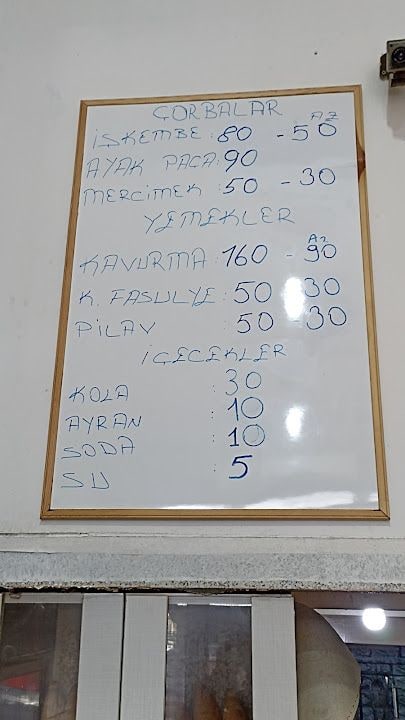 ÇORBALAR AZ
İŞKEMBE : 80 - 50
AYAK PAÇA : 90
MERCİMEK : 50 - 30
YEMEKLER
AZ
KAVURMA : 160 - 90
K. FASULYE : 50 - 30
PİLAV : 50 - 30
İÇECEKLER
KOLA : 30
AYRAN : 10
SODA : 10
SU : 5